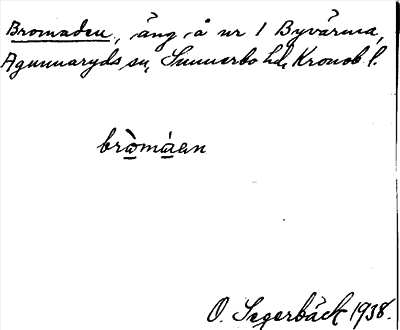 Bromaden, äng å nr 1 Byvärma,
Agunnaryds sn, Sunnerbo hd, Kronob l.
bròmáen
O. Segerbäck 1938.